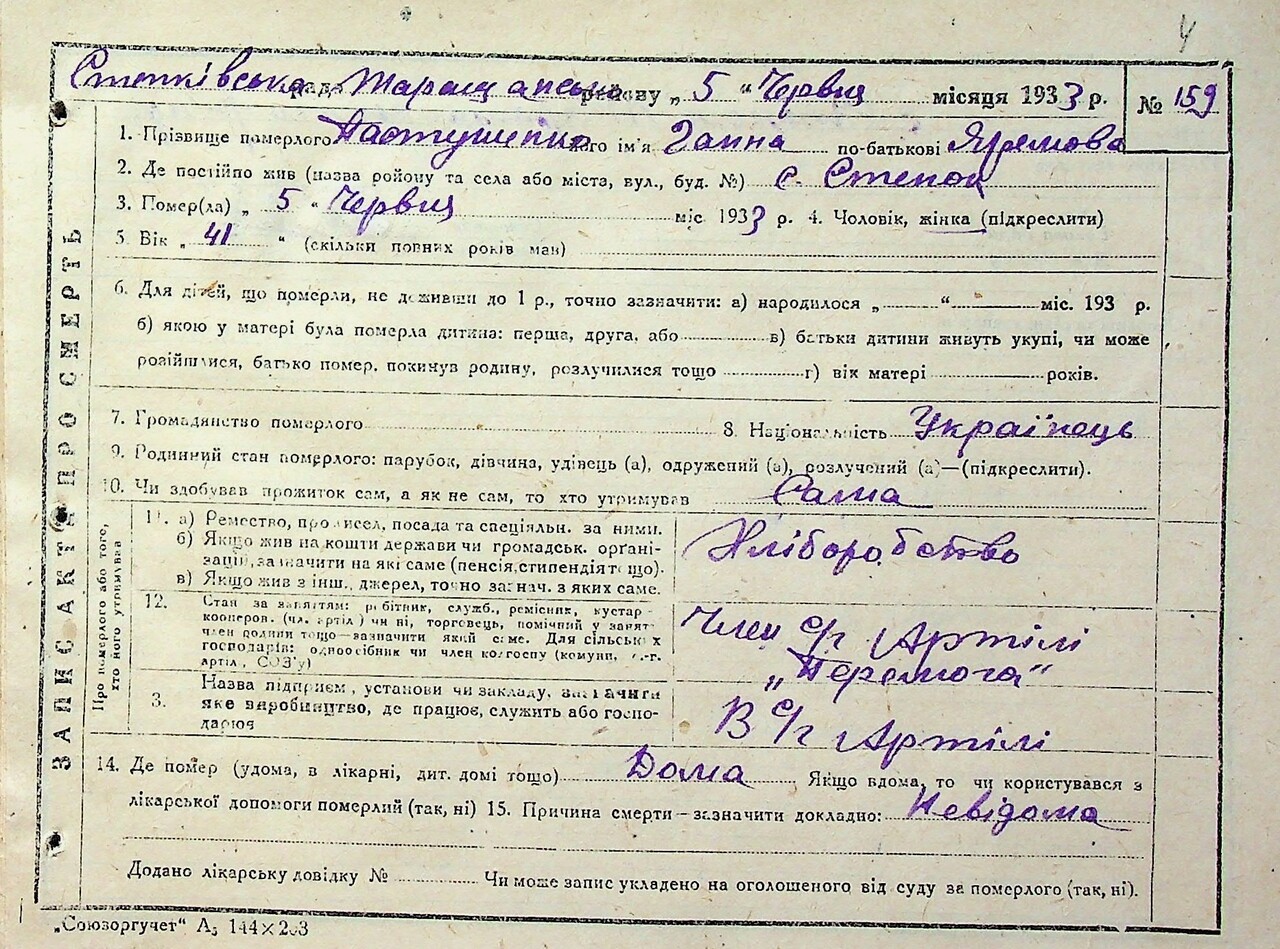 4
Степківська рада Таращанського району „ 5 “ Червня місяця 1933 р. № 159
ЗАПИС АКТУ ПРО СМЕРТЬ
1. Прізвище померлого Пастушенко його ім'я Ганна по-батькові Яремова
2. Де постійно жив (назва ройону та села або міста, вул., буд. №) с. Степок
3. Помер(ла) „ 5 “ Червня міс 1933 р. 4. Чоловік, жінка (підкреслити)
5. Вік „ 41 “ (скільки повних років мав)
6. Для дітей, що померли, не доживши до 1 р., точно зазначити: а) народилося „ “ міс. 193 р.
б) якою у матері була померла дитина: перша, друга, або в) батьки дитини живуть укупі, чи може
розійшлися, батько помер. покинув родину, розлучилися тощо г) вік матері років.
7. Громадянство померлого 8. Національність Українець
9. Родинний стан померлого: парубок, дівчина, удівець (а), одружений (а), розлучений (а)—(підкреслити).
10. Чи здобував прожиток сам, а як не сам, то хто утримував Сама
Про померлого або того,
хто його утримував
11. а) Ремество, промисел, посада та спеціяльн. за ними.
б) Якщо жив на кошти держави чи громадськ. орґані-
зацій, зазначити на які саме (пенсія, стипендія тощо).
в) Якщо жив з інш. джерел, точно зазнач. з яких саме.
Хліборобство
12. Стан за заняттям: робітник, служб., ремісник, кустар
кооперов. (чл. артіл) чи ні, торговець, помічний у занят.
член родини тощо—зазначити який саме. Для сільських
господарів: одноосібник чи член колгоспу (комуни, с.-г.
артіл, СОЗ'у)
Член с/г Артілі
„Перемога“
3. Назва підприєм, установи чи закладу, зазначити
яке виробництво, де працює, служить або госпо-
дарює
В с/г Артілі
14. Де помер (удома, в лікарні, дит. домі тощо) Дома Якщо вдома, то чи користувався з
лікарської допомоги померлий (так, ні) 15. Причина смерти—зазначити докладно: Невідома
Додано лікарську довідку № Чи може запис укладено на оголошеного від суду за померлого (так, ні).
„Союзоргучет“ А5 144×203